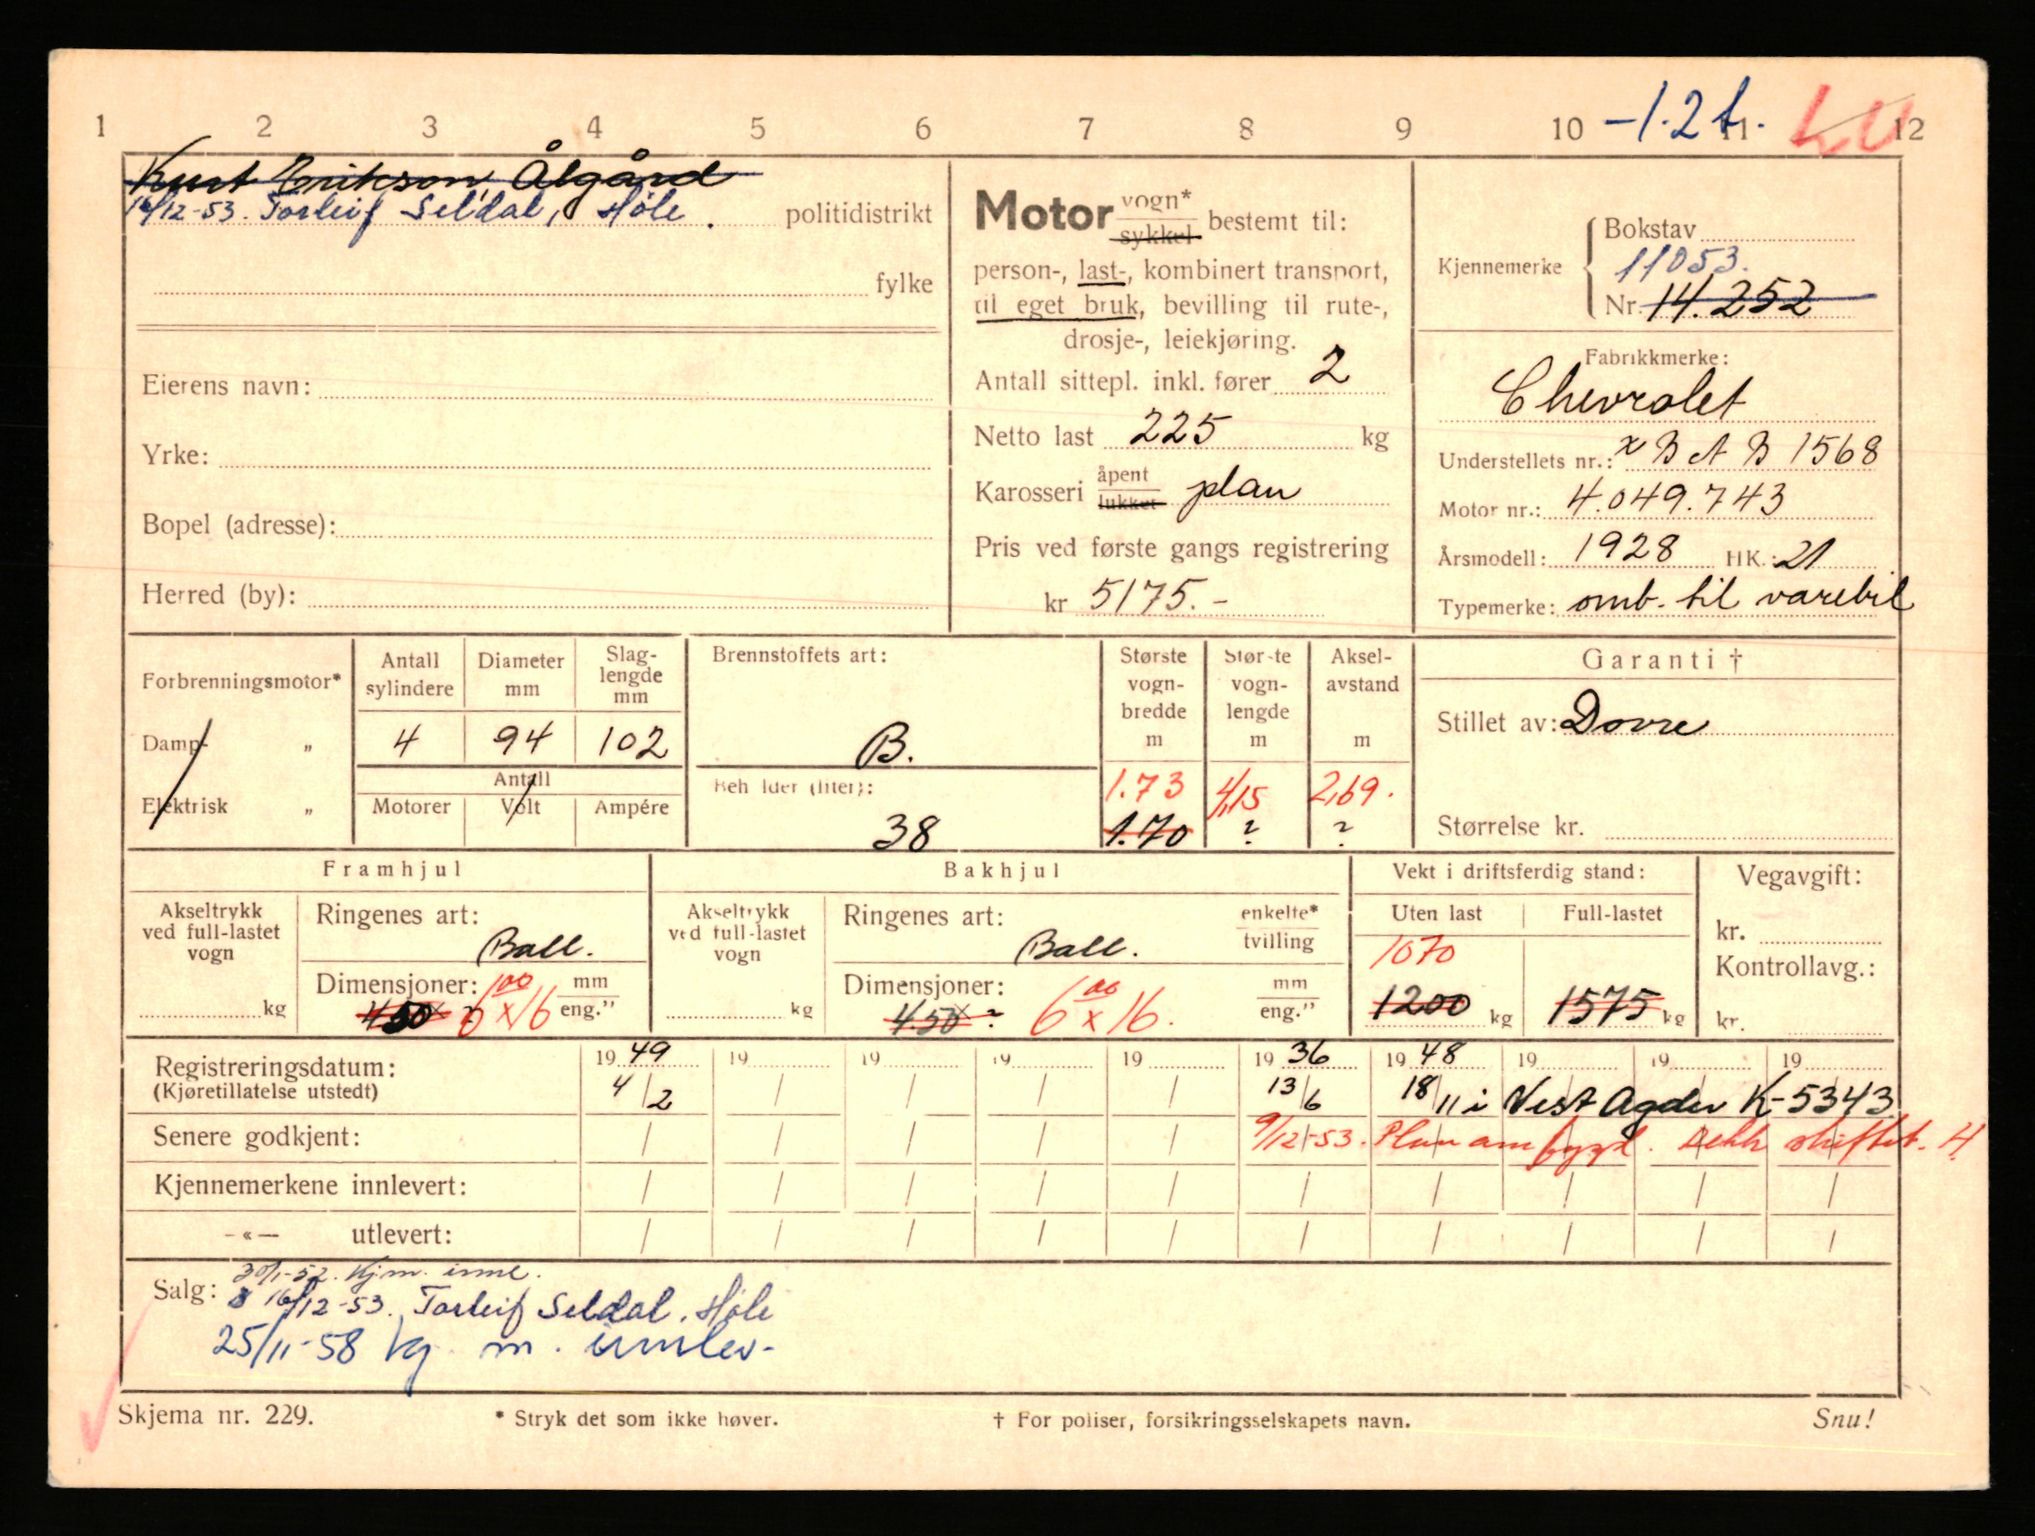 1 2 3 4 5 6 7 8 9 10 -1.2 t. 11 12
Kurt Erikson, Ålgård
16/12-53. Torleif Seldal, Høle. politidistrikt
fylke
Eierens navn:
Yrke:
Bopel (adresse):
Herred (by):
Motor vogn* sykkel bestemt til:
person-, last-, kombinert transport,
til eget bruk, bevilling til rute-,
drosje-, leiekjøring.
Antall sittepl. inkl. fører 2
Netto last 225 kg
Karosseri åpent lukket plan
Pris ved første gangs registrering
kr 5175.-
Kjennemerke
Bokstav
11053.
Nr. 14.252
Fabrikkmerke:
Chevrolet
Understellets nr.: x B A B 1568
Motor nr.: 4.049.743
Årsmodell: 1928 HK.: 21
Typemerke: omb. til varebil
Forbrenningsmotor*
Damp- „
Elektrisk „
Antall sylindere
Diameter mm
Slaglengde mm
4 94 102
Antall
Motorer Volt Ampére
Brennstoffets art:
B.
Beholder (liter):
38
Største vognbredde m
Største vognlengde m
Akselavstand m
1.73 4,15 2,69.
1.70 ? ?
Garanti †
Stillet av: Dovre
Størrelse kr.
Framhjul
Akseltrykk ved full-lastet vogn
kg
Ringenes art:
Ball.
Dimensjoner: mm eng."
450 x 6 00 x 16
Bakhjul
Akseltrykk ved full-lastet vogn
kg
Ringenes art: enkelte* tvilling
Ball.
Dimensjoner: mm eng."
450 x ? 6 00 x 16.
Vekt i driftsferdig stand:
Uten last Full-lastet
1070
1200 kg 1575 kg
Vegavgift:
kr.
Kontrollavg.:
kr.
Registreringsdatum: 19 49 19 19 19 19 19 36 19 48 19 19 19
(Kjøretillatelse utstedt) 4/2 / / / / 13/6 18/11 i Vest Agder K-5343
Senere godkjent: / / / / / 9/12-53. Plan ombygd. Dekk skiftet. H.
Kjennemerkene innlevert: / / / / / / / / / /
-«- utlevert: / / / / / / / / / /
Salg: 30/1-52. Kjm. innl.
16/12-53. Torleif Seldal, Høle
25/11-58 kj. m. innlev-
Skjema nr. 229. * Stryk det som ikke høver. † For poliser, forsikringsselskapets navn. Snu!